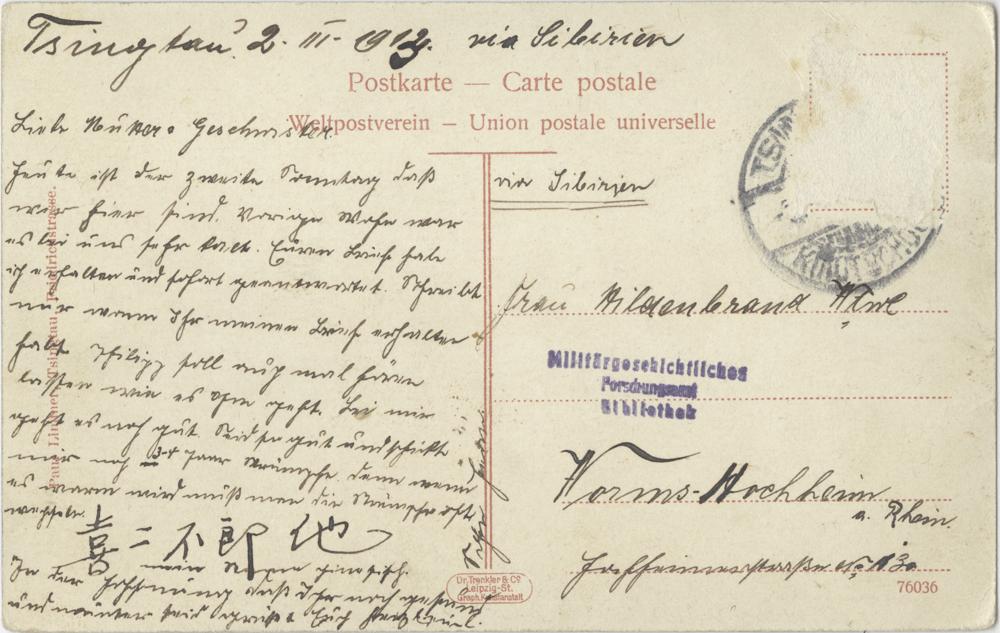 Tsingtau 2. III. 1913. via Sibirien
Postkarte — Carte postale
Weltpostverein – Union postale universelle
Liebe Mutter u Geschwister
Heute ist der zweite Sonntag daß
wir hier sind. Vorige Woche war
es bei uns sehr kalt. Euren Brief habe
ich erhalten und sofort geantwortet. Schreibt
mir wann Ihr meinen Brief erhalten
habt. Philipp soll auch mal hören
lassen wie es ihm geht. Bei mir
geht es noch gut. Seid so gut und schickt
mir noch 3-4 Paar Strümpfe denn wenn
es warm wird muß man die Strümpfe oft
wechseln.
喜二不郎他
mein Name chinesisch.
In der Hoffnung daß Ihr noch gesund
und munter seid grüßt Euch
Paul Lindner, Tsingtau, Friedrichstrasse.
via Sibirien
TSINGTAU
KIAUTSCHOU
Frau Hildenbrand Wwe
Militärgeschichtliches
Forschungsamt
Bibliothek
Worms-Hochheim
a. Rhein.
No 13
Dr. Trenkler & Co
Leipzig-St.
Graph. Kunstanstalt
76036